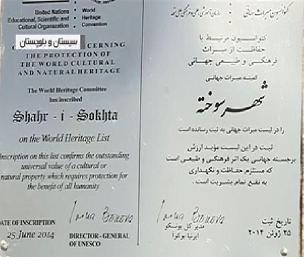 United Nations
Educational, Scientific and
Cultural Organization
World
Heritage
Convention
سیستان و بلوچستان
CONCERNING
THE PROTECTION OF
THE WORLD CULTURAL
AND NATURAL HERITAGE
The World Heritage Committee
has inscribed
Shahr - i - Sokhta
on the World Heritage List
Inscription on this list confirms the outstanding
universal value of a cultural or
natural property which requires protection for
the benefit of all humanity
DATE OF INSCRIPTION
25 June 2014
DIRECTOR-GENERAL
OF UNESCO
کنوانسیون مرتبط با
حفاظت از میراث
فرهنگی و طبیعی جهانی
کمیته میراث جهانی
شهر سوخته
را در لیست میراث جهانی به ثبت رسانده است
ثبت در این لیست مؤید ارزش
برجسته جهانی یک اثر فرهنگی و طبیعی است
که مستلزم حفاظت و نگهداری
به نفع تمام بشریت است.
تاریخ ثبت
۲۵ ژوئن ۲۰۱۴
مدیر کل یونسکو
ایرنا بوکوا